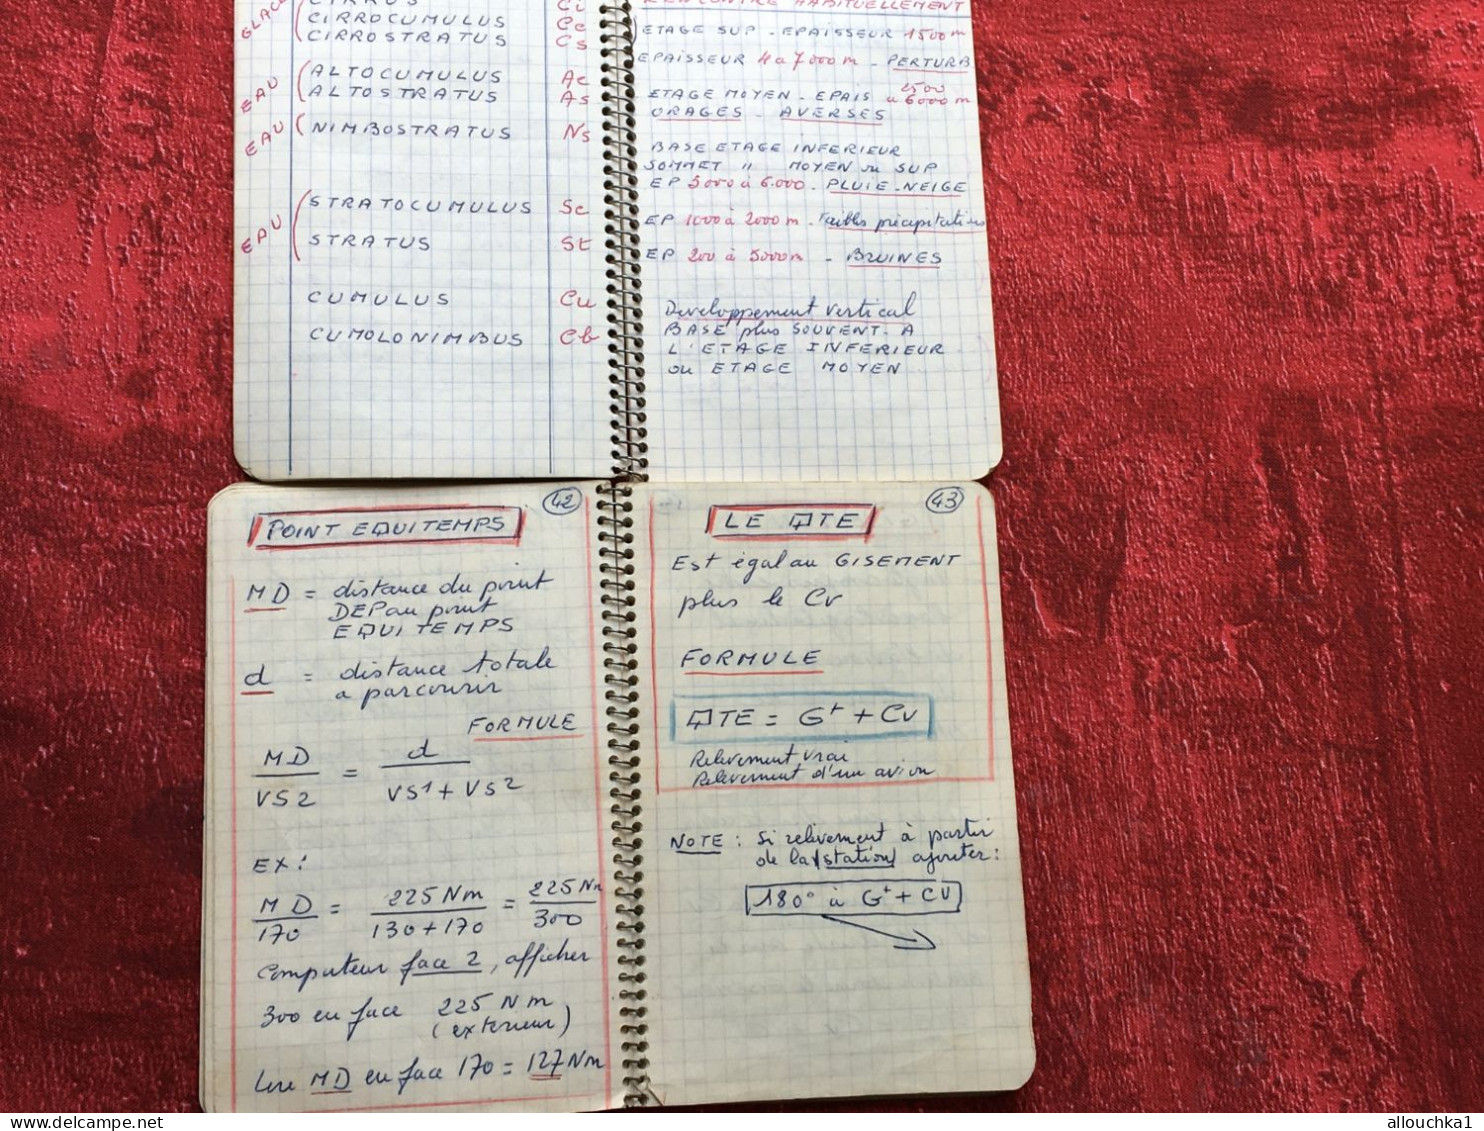 GLACE
CIRRUS Ci
CIRROCUMULUS Cc
CIRROSTRATUS Cs
EAU
ALTOCUMULUS Ac
ALTOSTRATUS As
EAU NIMBOSTRATUS Ns
EAU
STRATOCUMULUS Sc
STRATUS St
CUMULUS Cu
CUMOLONIMBUS Cb
RENCONTRE HABITUELLEMENT
ETAGE SUP - EPAISSEUR 1500 m
EPAISSEUR 4 a 7000 m - PERTURB
ETAGE MOYEN - EPAIS 2500 a 6000 m
ORAGES - AVERSES
BASE ETAGE INFERIEUR
SOMMET " MOYEN ou SUP
EP 5000 à 6.000 - PLUIE - NEIGE
EP 1000 à 2000 m - Faibles précipitations
EP 200 à 5000 m - BRUINES
Developpement vertical
BASE plus SOUVENT A
L'ETAGE INFERIEUR
ou ETAGE MOYEN
42
POINT EQUITEMPS
MD = distance du point
DEP au point
EQUITEMPS
d = distance totale
a parcourir
FORMULE
MD = d
VS2 VS1 + VS2
EX:
MD = 225 Nm = 225 Nm
170 130+170 300
Computeur face 2, afficher
300 en face 225 Nm
(exterieur)
Lire MD en face 170 = 127 Nm
43
LE QTE
Est égal au GISEMENT
plus le Cv
FORMULE
QTE = Gt + Cv
Relevement vrai
Relevement d'un avion
NOTE : Si relèvement à partir
de la station ajouter:
180° à Gt + CV
allouchka1